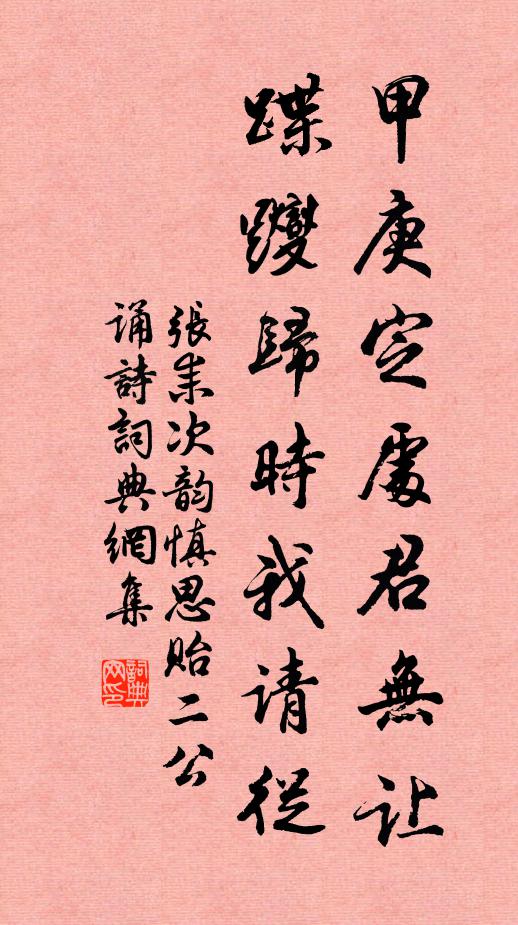 甲庚定處君無让
蹀躞歸時我请從
張耒次韵慎思贻二公
诵詩詞典網集
詞典网印